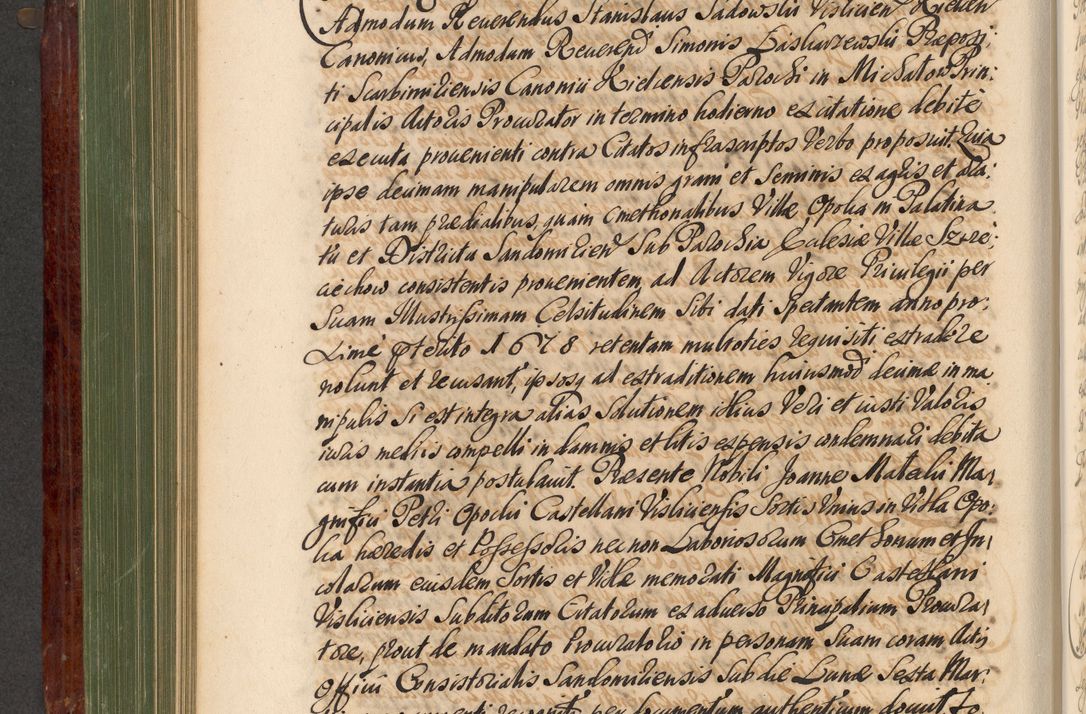 Admodum Reverendus Stanislaus Sadowski Vislicien Kielcen
Canonicus, Admodum Reverend Simonis Praeposi:
ti Scarbimiriensis Canonici Kielcensis Parochi in Michałow Prin:
cipalis Actoris Procurator in termino hodierno ex citatione debite
executa provenienti contra Citatos infrascriptos Verbo proposuit. Quia
ipse decimam manipularem omnis grani et Seminis ex agris et ara:
turis tam praedialibus, quam Cmethonalibus Villae Opolia in Palatina
tu et Districtu Sandomirien Sub Parochia Ecclesiae Villae Szcze:
ciechow consistentis provenientem, ad Actorem Vigore Privilegii per
Suam Illustrissimam Celsitudinem Sibi dati Spectantem anno pro:
xime pterito 1678 retentam multoties requisiti extradere
nolunt et recusant, ipsosq ad extraditionem huiusmod decimae in ma:
nipulis Si est integra alias Solutionem illius Veri et iusti Valoris
iuris mediis compelli in damnis et litis expensis condemnari debita
cum instantia postulavit. Praesente Nobili Joanne Ma:
gnifici Petri Opocki Castellani Visliciensis Sortis Unius in Villa Opo:
lia haeredis et Possessoris nec non Laboriosorum Cmethonum et In:
colarum eiusdem Sortis et Villae memorati Magnifici Castellani
Visliciensis Subditorum Citatorum ex adverso Principalium Procura:
tore, prout de mandato Procuratorio in personam Suam coram Actis
Officii Consistorialis Sandomiriensis Sub die Lunae Sexta Mar:
per documentum authenticum docuit